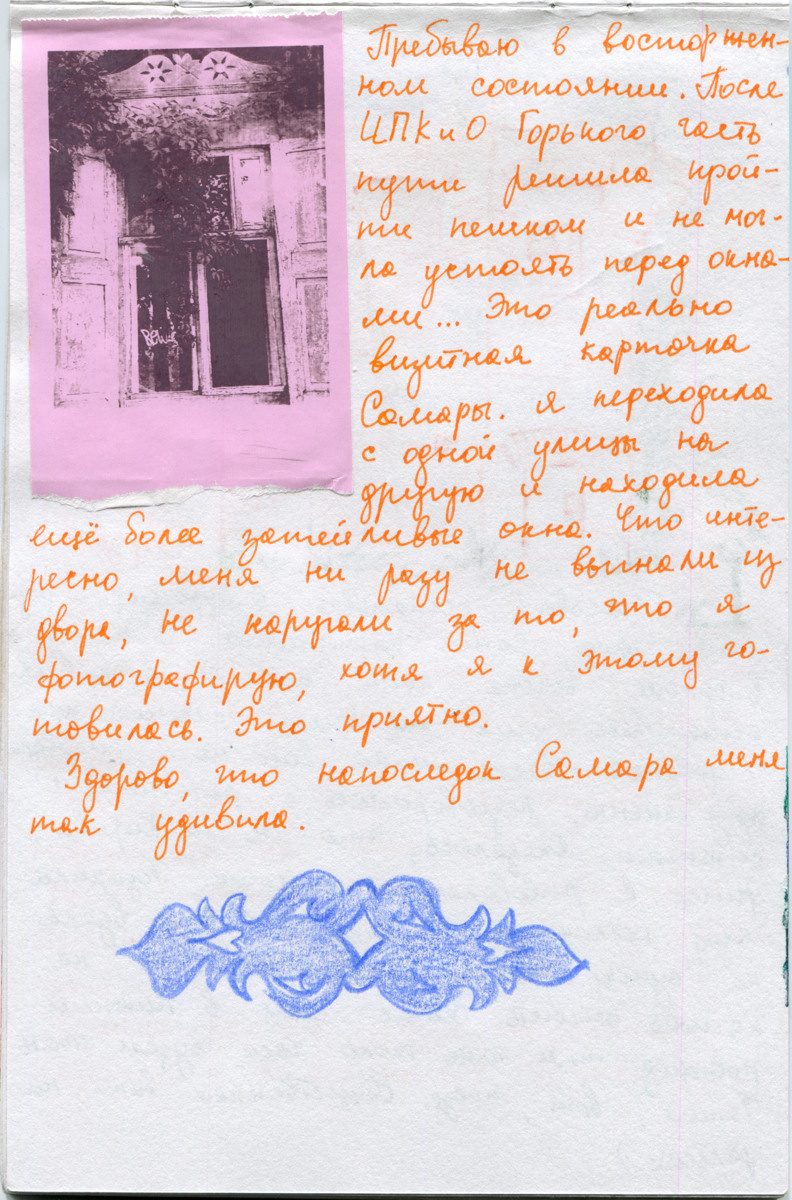 Пребываю в восторжен-
ном состоянии. После
ЦПКиО Горького часть
пути решила прой-
ти пешком и не мог-
ла устоять перед окна-
ми... Это реально
визитная карточка
Самары. Я переходила
с одной улицы на
другую и находила
ещё более затейливые окна. Что инте-
ресно, меня ни разу не выгнали из
двора, не наругали за то, что я
фотографирую, хотя я к этому го-
товилась. Это приятно.
Здорово, что напоследок Самара меня
так удивила.